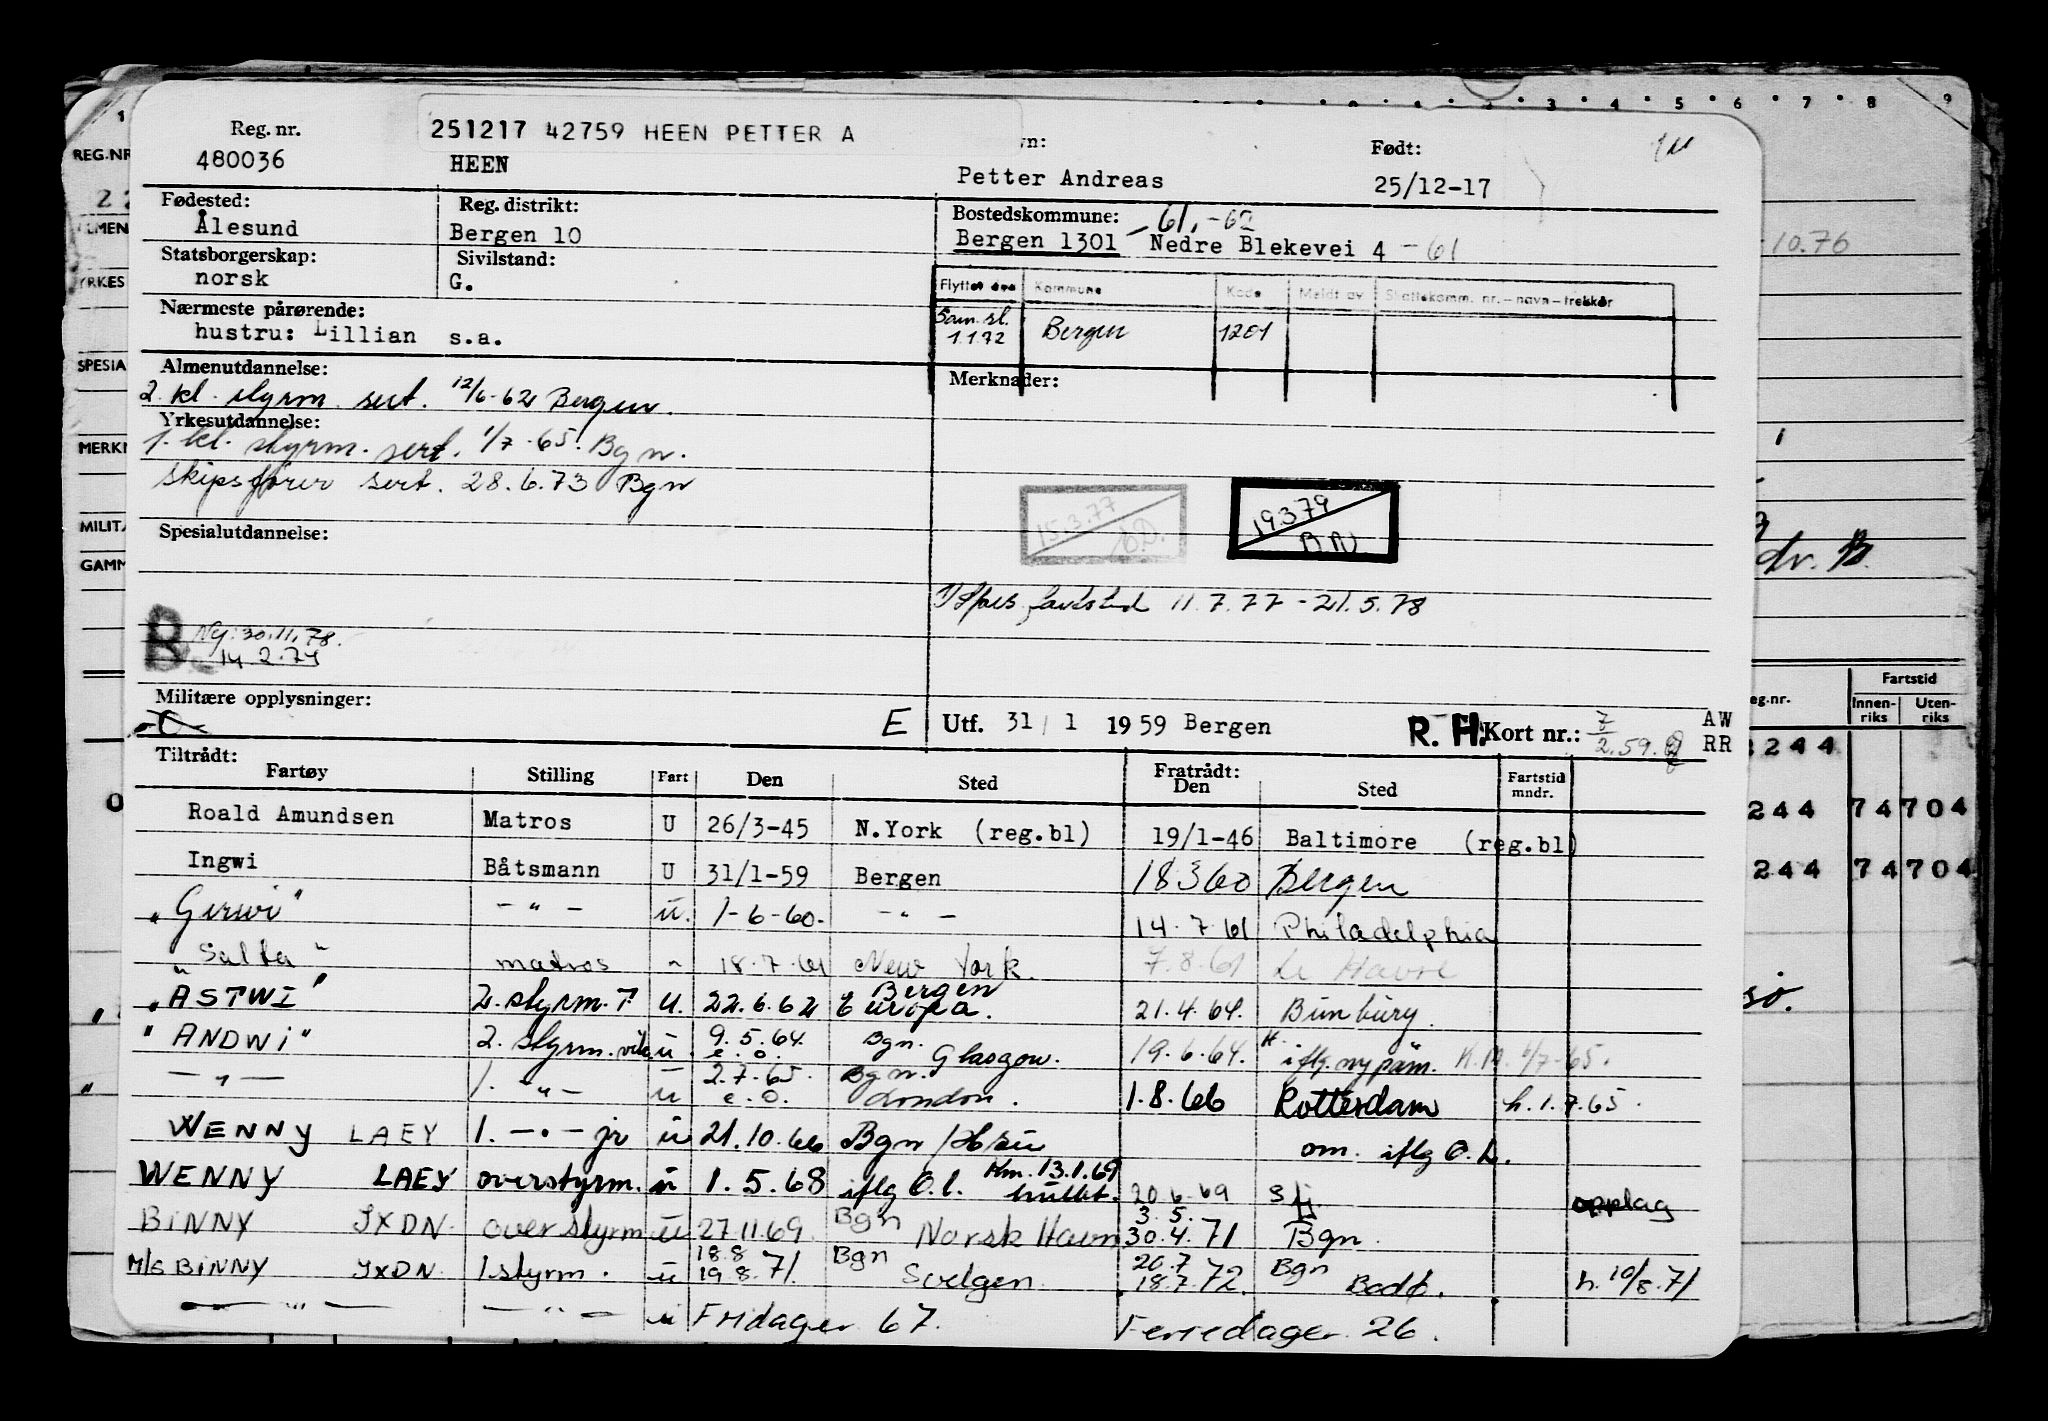 251217 42759 HEEN PETTER A
Reg. nr.
480036
HEEN
Petter Andreas
Født:
25/12-17
Fødested:
Ålesund
Reg. distrikt:
Bergen 10
Bostedskommune: 61,-62
Bergen 1301 Nedre Blekevei 4 -61
Statsborgerskap:
norsk
Sivilstand:
G.
Flyttet den Kommune Kode Meldt av Skattekomm. nr.-navn-trekkår
Sam. sl. 1.1.72 Bergen 1201
Nærmeste pårørende:
hustru: Lillian s.a.
Almenutdannelse:
2. kl. styrm. sert. 12/6-62 Bergen.
Merknader:
Yrkesutdannelse:
1. kl. styrm. sert. 1/7-65. Bgn.
skipsfører sert. 28.6.73 Bgn
15.3.77
19.3.79
Spesialutdannelse:
fartstid 11.7.77 - 21.5.78
B Ny: 30.11.78.
14.2.74
Militære opplysninger:
E
Utf. 31/1 1959 Bergen
R. H. Kort nr.:
2.59.
AW
RR
Tiltrådt:
Fartøy Stilling Fart Den Sted Fratrådt: Den Sted Fartstid mndr.
Roald Amundsen Matros U 26/3-45 N.York (reg.bl) 19/1-46 Baltimore (reg.bl)
Ingwi Båtsmann U 31/1-59 Bergen 18360 Bergen
"Gerwi" - " - u. 1-6-60. - " - 14.7.61 Philadelphia
"Salta" matros " 18.7.61 New York. 7.8.61 Le Havre
"ASTWI" 2. styrm. 7 u. 22.6.62 Bergen Europa. 21.4.64. Bunbury.
"ANDWI" 2. styrm. vik. u 9.5.64. e.o. Bgn. Glasgow. 19.6.64. iflg. ny påm.
- " - 1. - " - u 2.7.65. e.o. Bgn. London. 1.8.66 Rotterdam h.1.7.65.
WENNY LAEY 1. - " - jr u 21.10.66 Bgn om. iflg O.L.
WENNY LAEY overstyrm. u 1.5.68 iflg O.l. 13.1.69 20.6.69 opplag
BINNY JXDN. overstyrm u 27.11.69. Bgn Norsk Havn 3.5. 30.4.71 Bgn.
M/S BINNY JXDN. 1styrm. u 18.8 19.8.71. Bgn Svelgen. 20.7 18.7.72. Bgn Bodø. h. 10/8.71
- " - - " - u Fridager 67. Feriedager 26.
REG.NR
YRKES
SPESIA
MERKN
MILITÆ
GAMM
1 2 3 4 5 6 7 8 9
10.76
Fartstid
Innen-riks Uten-riks
244 74 704
244 74 704